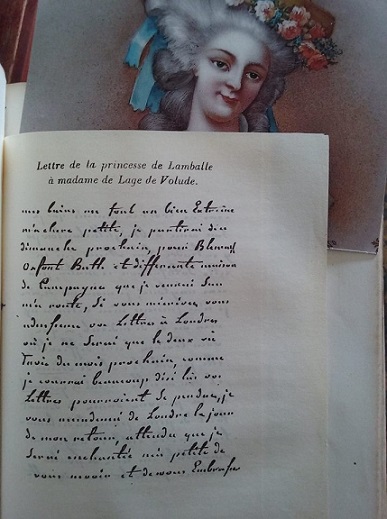 Lettre de la princesse de Lamballe
à madame de Lage de Volude.
mes bains me font un bien Extrême
ma chere petite, je partirai de
dimanche prochain, pour
Oxfort Bath et differante maison
de Campagne que je verrai sur
ma route, Si vous m'ecrivez vous
vos Lettre à Londre
où je ne Serai que le deux où
Trois du mois prochain comme
je courrai beaucoup dici là vos
Lettres pourroient Se perdre, je
vous de Londre le jour
de mon retour, attendu que je
Serai enchantée ma petite de
vous revoir et de vous Embrasser